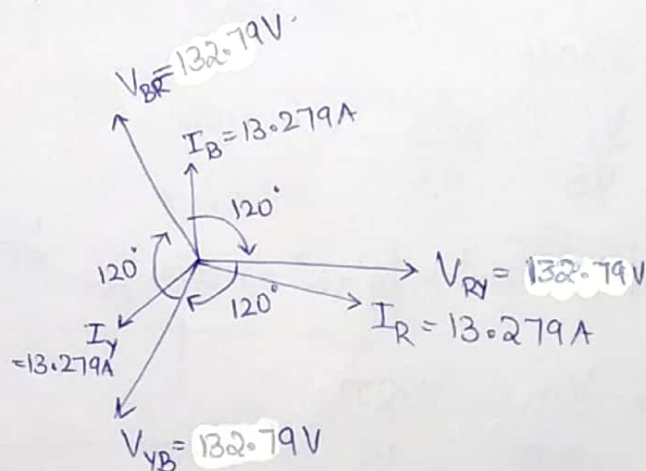 V_BR=132.79V
I_B=13.279A
120°
120°
120°
V_RY = 132.79V
I_R = 13.279A
I_Y
=13.279A
V_YB= 132.79V